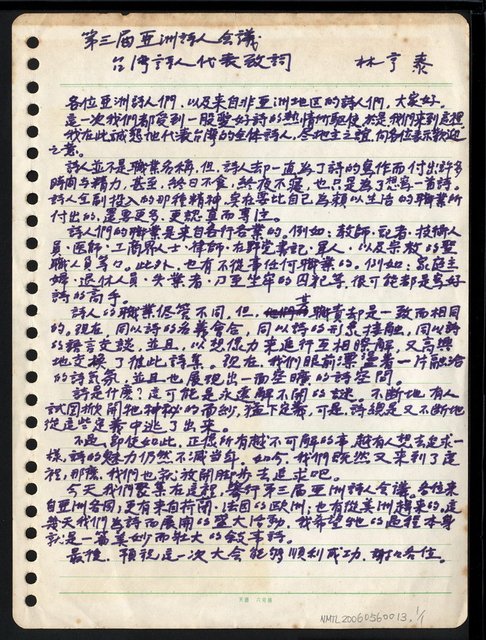 第三届亚洲詩人会議
台湾詩人代表致詞 林亨泰
各位亚洲詩人們，以及来自非亚洲地区的詩人們，大家好。
這一次我們都受到一股愛好詩的熱情所驅使，於是我們来到這裡。
我在此誠懇地代表台湾的全体詩人，尽地主之誼，向各位表示歓迎
之意。
詩人並不是職業名稱，但，詩人却一直為了詩的寫作而付出許多
時間与精力，甚至，終日不食，終夜不寝，也只是為了想寫一首詩。
詩人全副投入的那種精神，实在要比自己為賴以生活的職業所
付出的，還要更多、更認真而專注。
詩人們的職業是来自各行各業的，例如：教師、記者、技術人
員、医師、工商界人士、律師、在野党書記、軍人、以及宗教的聖
職人員等々。此外，也有不從事任何職業的，例如：家庭主
婦、退休人員、失業者、乃至坐牢的囚犯等，很可能都是寫好
詩的高手。
詩人的職業尽管不同，但，其職責却是一致而相同
的。現在，同以詩的名義会合，同以詩的形象接触，同以詩
的語言交談，並且，以想像力来進行互相瞭解，又高興
地交換了彼此詩集。現在，我們眼前漂盪着一片融洽
的詩気氛，並且也展現出一面空曠的詩空間。
詩是什麼？這可能是永遠解不開的謎。不断地，有人
試图掀開牠神秘的面紗，猛下定義，可是，詩總是又不断地
從這些定義中逃了出来。
不過，即使如此，正像所有越不可解的事，越有人想去追求一
樣，詩的魅力仍然不減当年。如今，我們既然又来到了這
裡，那麼，我們也就放開脚步去追求吧。
今天我們聚集在這裡，舉行第三届亚洲詩人会議。各位来
自亚洲各国，更有来自荷閒、法国的欧洲，也有從美洲趕来的，這
幾天我們為詩而展開的盛大活動，我希望牠的過程本身
就是一篇美妙而壮大的敘事詩。
最後，預祝這一次大会能夠順利成功，謝々各位。
NMTL20060560013, 1/1